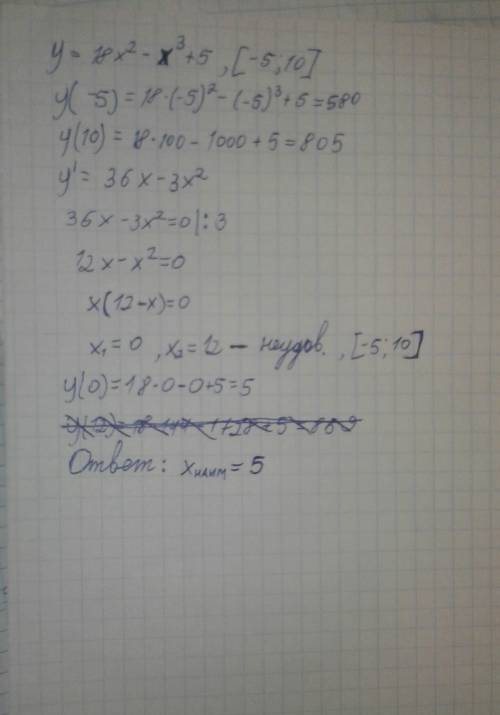 y = 18x² - x³ + 5 , [-5; 10]
y(-5) = 18·(-5)² - (-5)³ + 5 = 580
y(10) = 18·100 - 1000 + 5 = 805
y' = 36x - 3x²
36x - 3x² = 0 | : 3
12x - x² = 0
x(12-x) = 0
x₁ = 0 , x₂ = 12 — неудов. , [-5; 10]
y(0) = 18·0 - 0 + 5 = 5
Ответ: xнаим = 5